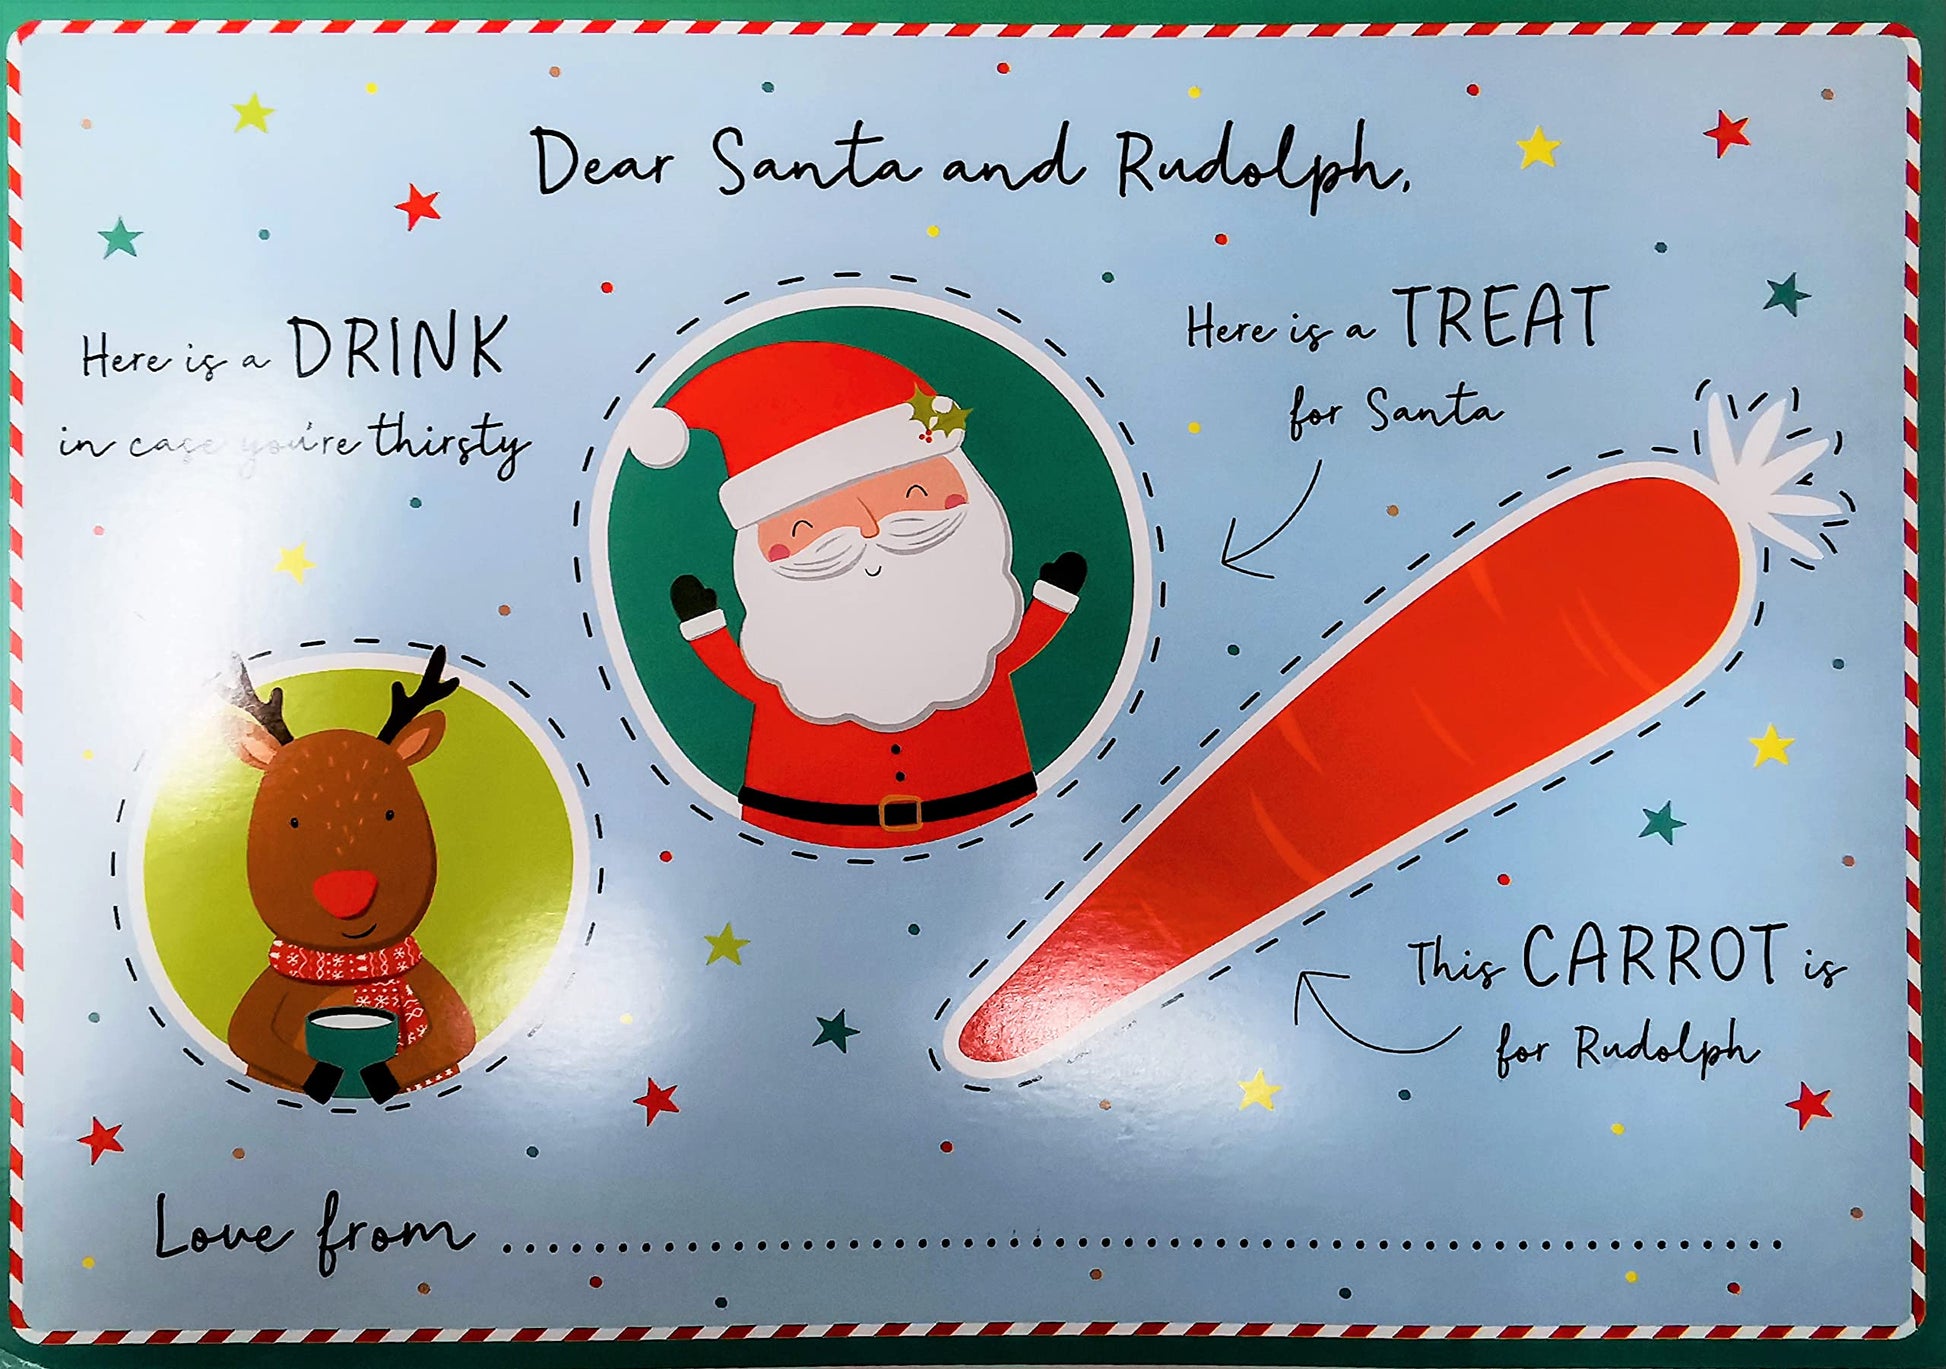 Dear Santa and Rudolph,
Here is a DRINK
in case you're thirsty
Here is a TREAT
for Santa
This CARROT is
for Rudolph
Love from ................................................................................